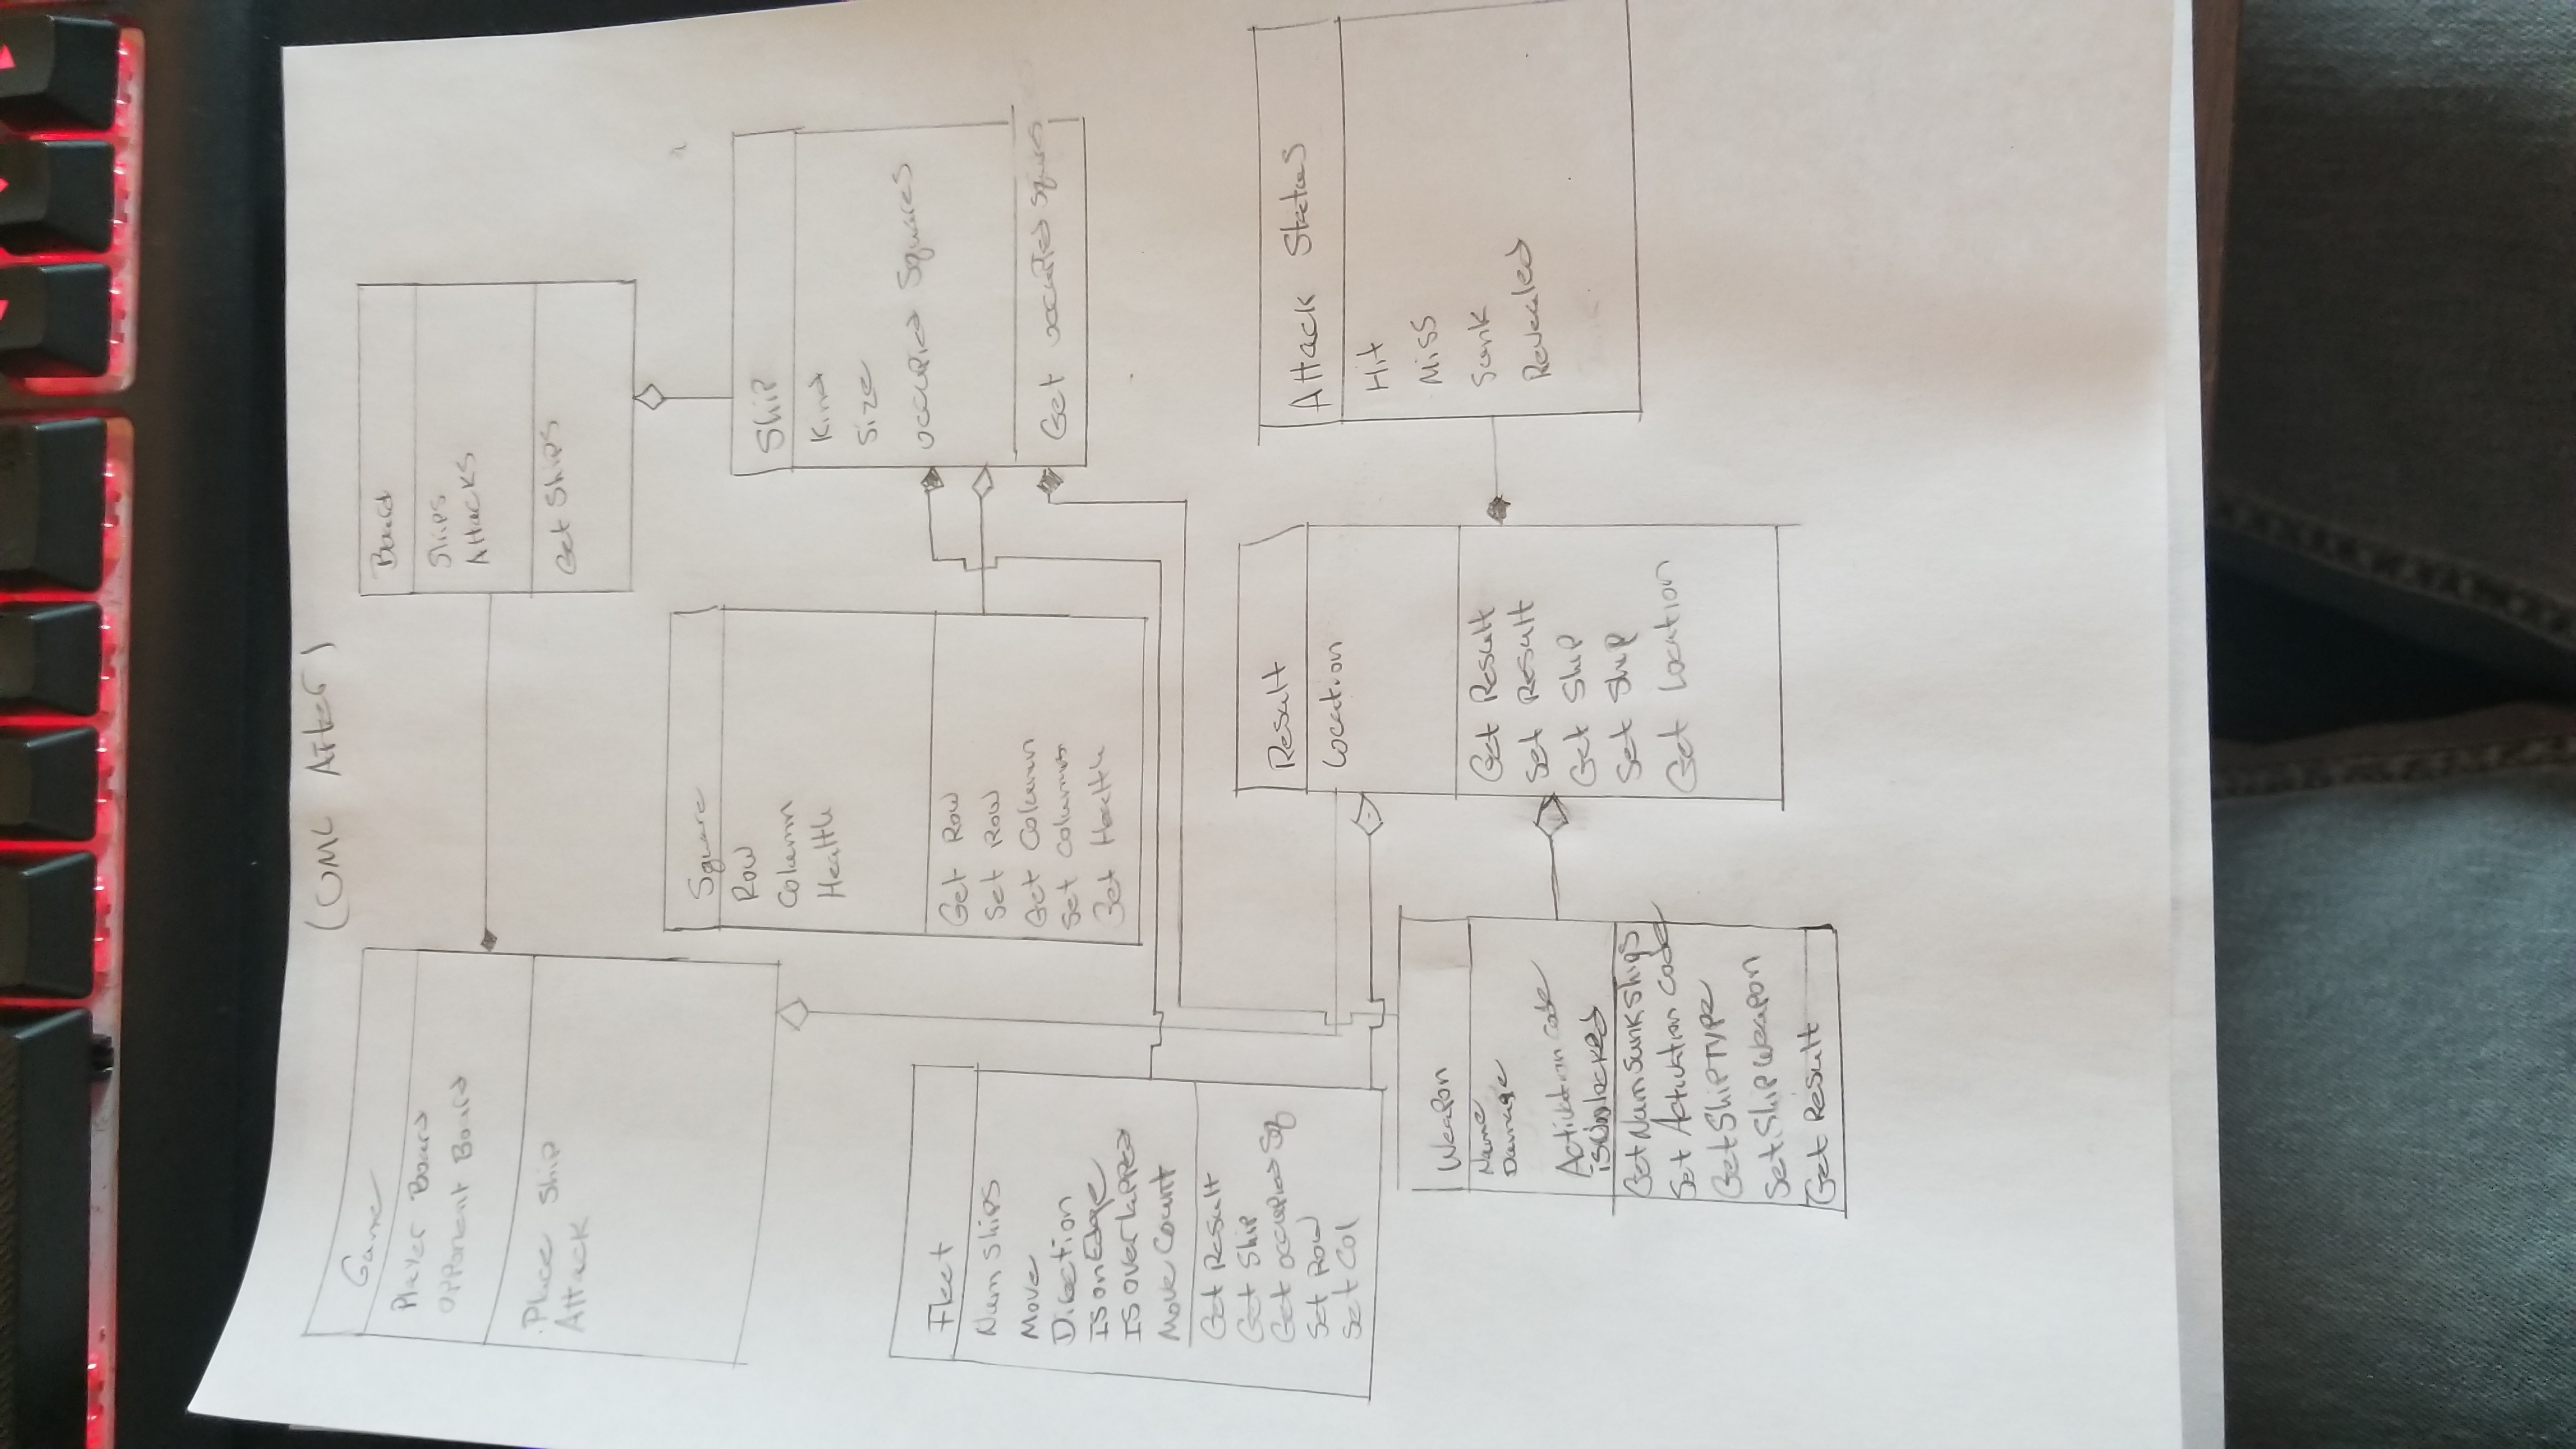 (UML After)
Game
Player Board
Opponent Board
Place Ship
Attack
Board
Ships
Attacks
Get Ships
Square
Row
Column
Health
Get Row
Set Row
Get Column
Set Column
Get Health
Ship
Kind
Size
occupied Squares
Get occupied Squares
Fleet
Num Ships
Move
Direction
IsonEdge
IsoverLapped
Move Count
Get Result
Get Ship
Get occupied Sq
Set Row
Set Col
Result
Location
Get Result
Set Result
Get Ship
Set Ship
Get Location
Attack Status
Hit
Miss
Sunk
Revealed
Weapon
Name
Damage
Activation code
isUnlocked
Get Num Sunk Ships
Set Activation code
Get Ship Type
Set Ship Weapon
Get Result